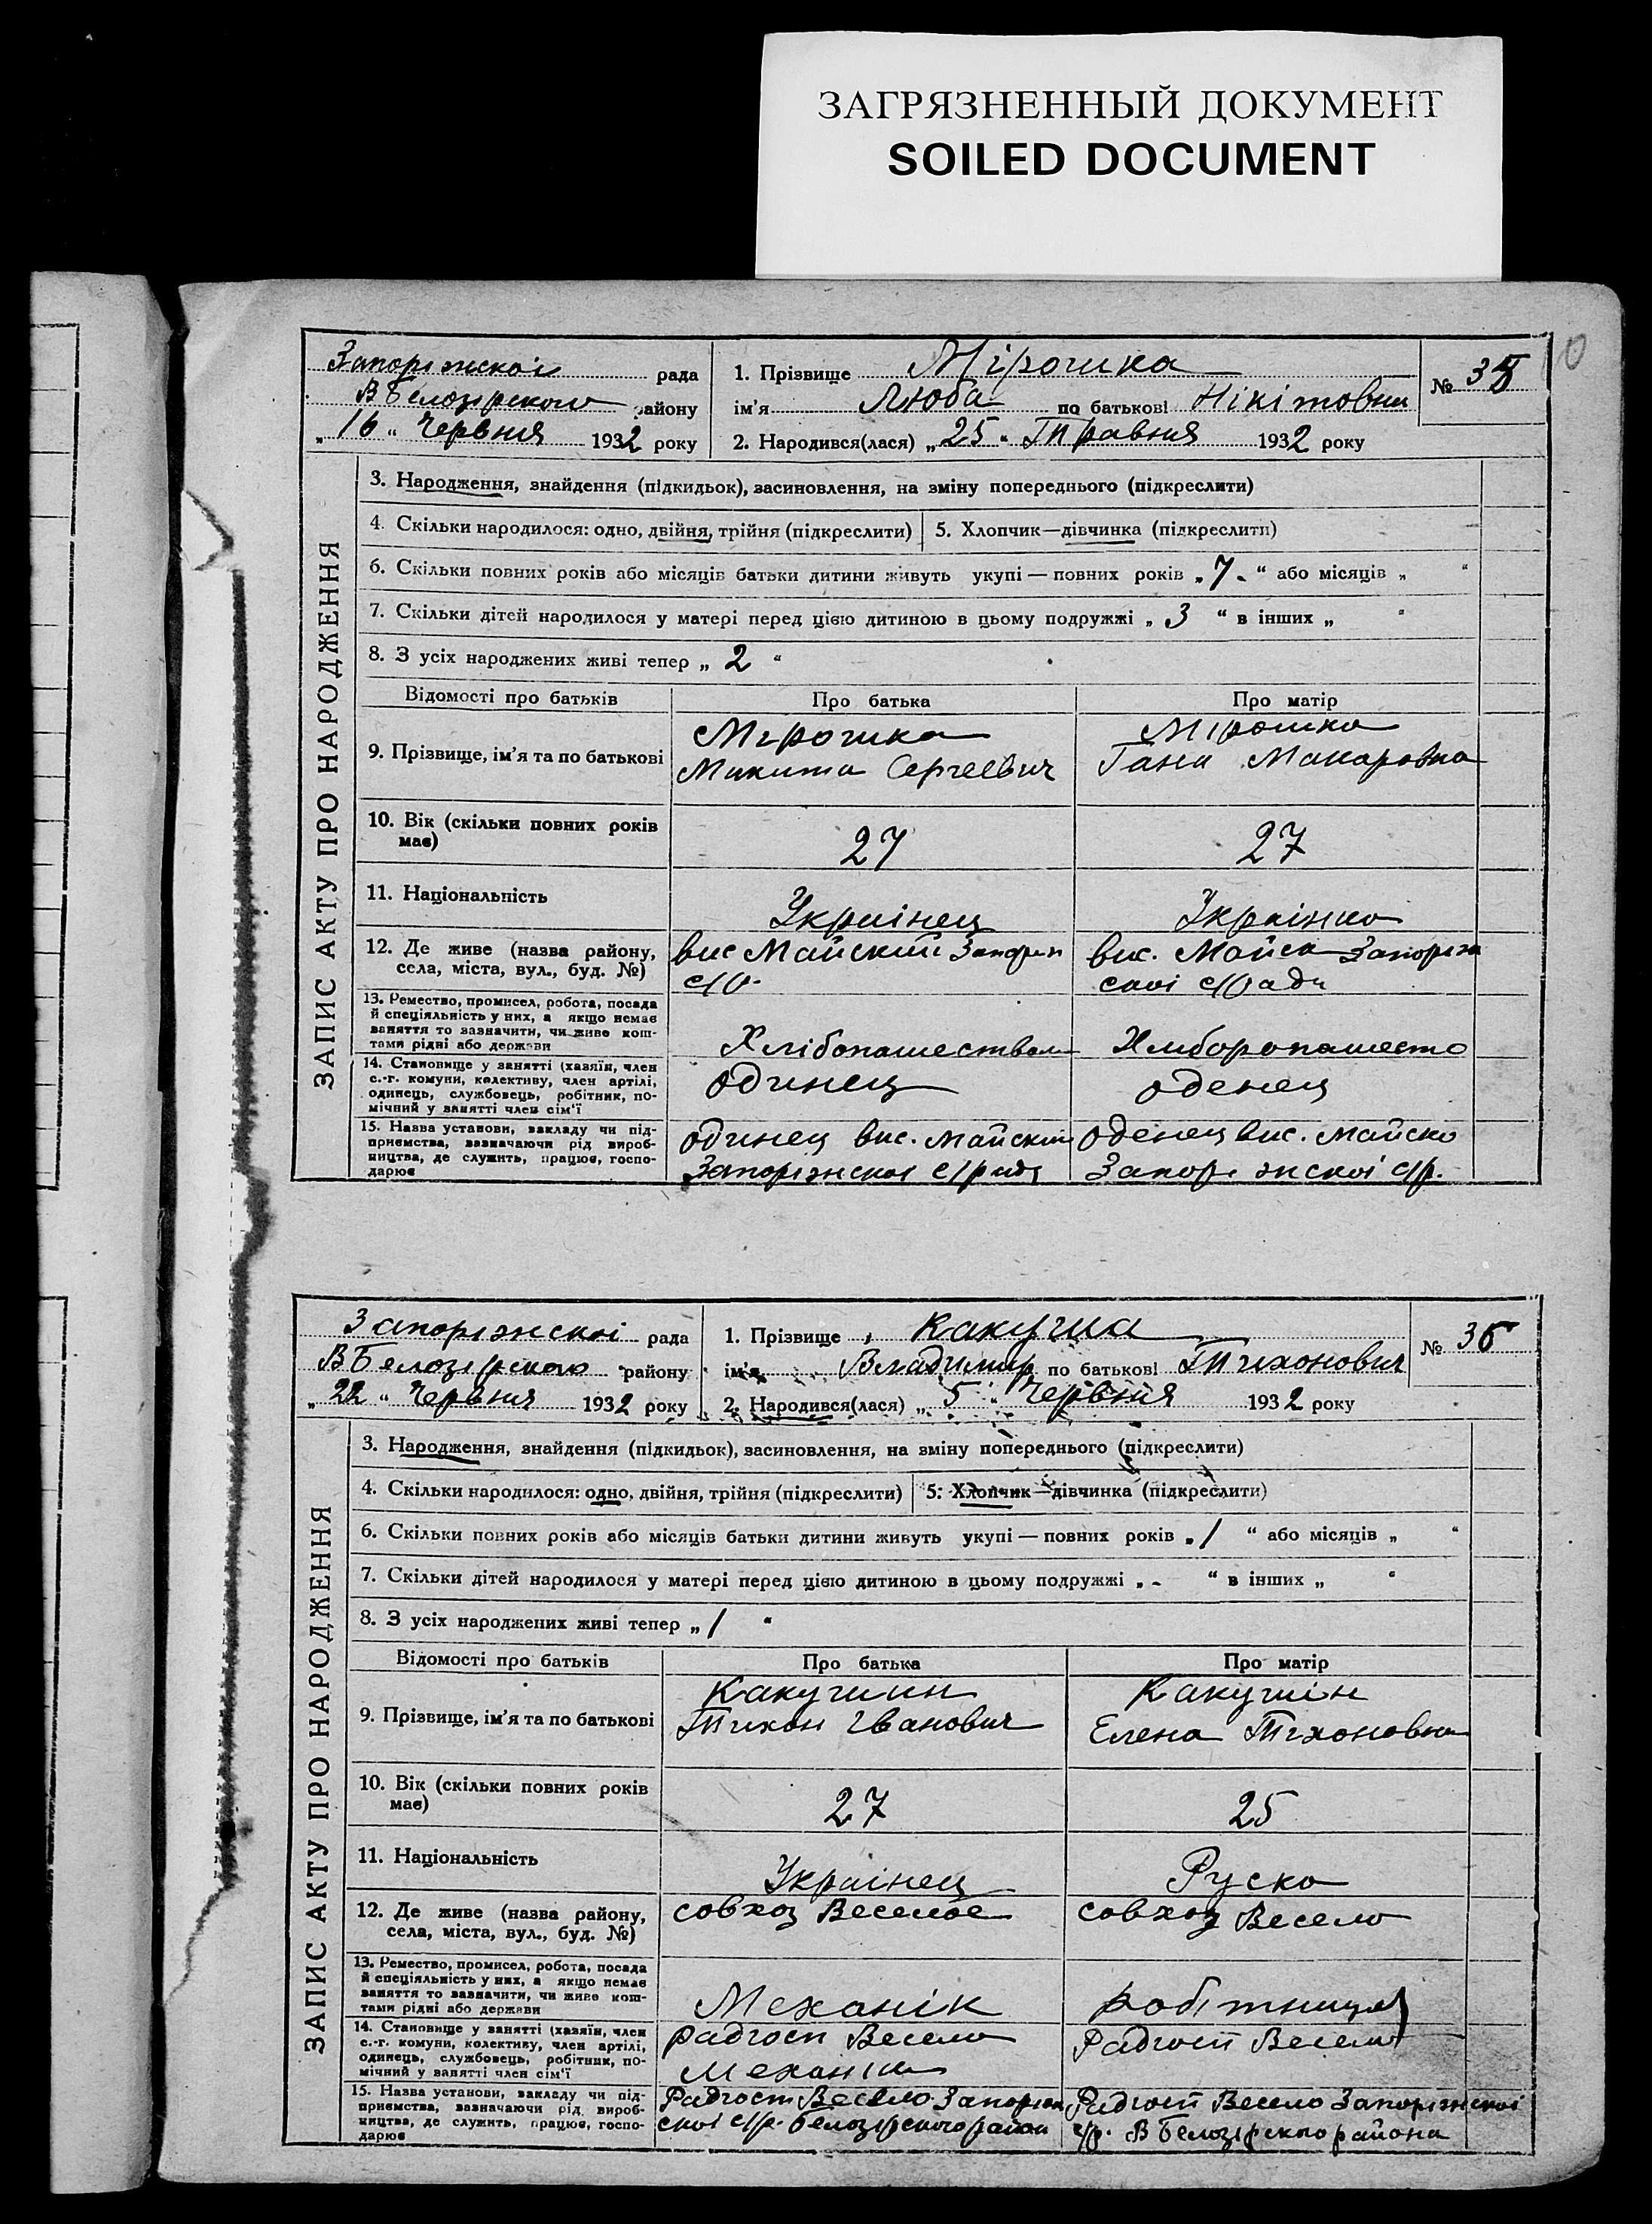 ЗАГРЯЗНЕННЫЙ ДОКУМЕНТ
SOILED DOCUMENT
0
ЗАПИС АКТУ ПРО НАРОДЖЕННЯ
Запоріжскоі рада
ВБелозірского району
„16“ Червня 1932 року
1. Прізвище Мірошка
ім'я Люба по батькові Нікітовна
2. Народився(лася) „25“ Травня 1932 року
№ 35
3. Народження, знайдення (підкидьок), засиновлення, на зміну попереднього (підкреслити)
4. Скільки народилося: одно, двійня, трійня (підкреслити) 5. Хлопчик—дівчинка (підкреслити)
6. Скільки повних років або місяців батьки дитини живуть укупі — повних років „7“ або місяців „ “
7. Скільки дітей народилося у матері перед цією дитиною в цьому подружжі „3“ в інших „ “
8. З усіх народжених живі тепер „2“
Відомості про батьків Про батька Про матір
9. Прізвище, ім'я та по батькові
Мірошка Мірошка
Микита Сергеевич Гана Макаровна
10. Вік (скільки повних років має) 27 27
11. Національність Украінец Украінко
12. Де живе (назва району, села, міста, вул., буд. №)
вис Майский Запоріж вис. Майск Запоріж
с/р. скоі с/ради
13. Ремество, промисел, робота, посада й спеціяльність у них, а якщо немає заняття то зазначити, чи живе коштами рідні або держави
Хлібопашеством
14. Становище у занятті (хазяїн, член с.-г. комуни, колективу, член артілі, одинець, службовець, робітник, помічний у занятті член сім'ї
одинец оденец
15. Назва установи, закладу чи підприємства, зазначаючи рід виробництва, де служить, працює, господарює
одинец вис. Майский оденец вис. Майско
Запоріжскоі с/рада Запоріжскоі с/р.
ЗАПИС АКТУ ПРО НАРОДЖЕННЯ
Запоріжскоі рада
ВБелозірского району
„22“ Червня 1932 року
1. Прізвище Какуша
ім'я Владимир по батькові Тихонович
2. Народився(лася) „5“ Червня 1932 року
№ 36
3. Народження, знайдення (підкидьок), засиновлення, на зміну попереднього (підкреслити)
4. Скільки народилося: одно, двійня, трійня (підкреслити) 5. Хлопчик—дівчинка (підкреслити)
6. Скільки повних років або місяців батьки дитини живуть укупі — повних років „1“ або місяців „ “
7. Скільки дітей народилося у матері перед цією дитиною в цьому подружжі „-“ в інших „ “
8. З усіх народжених живі тепер „1“
Відомості про батьків Про батька Про матір
9. Прізвище, ім'я та по батькові
Какушин Какушін
Тихон Іванович Елена Тихоновна
10. Вік (скільки повних років має) 27 25
11. Національність Украінец Руско
12. Де живе (назва району, села, міста, вул., буд. №)
совхоз Веселое совхоз Весело
13. Ремество, промисел, робота, посада й спеціяльність у них, а якщо немає заняття то зазначити, чи живе коштами рідні або держави
Механік робітниця
14. Становище у занятті (хазяїн, член с.-г. комуни, колективу, член артілі, одинець, службовець, робітник, помічний у занятті член сім'ї
радгосп Весело Радгосп Весело
Механік
15. Назва установи, закладу чи підприємства, зазначаючи рід виробництва, де служить, працює, господарює
Радгосп Весело Запоріж Радгосп Весело Запоріжскоі
скоі с/р. Белозірского район с/р. ВБелозірского района